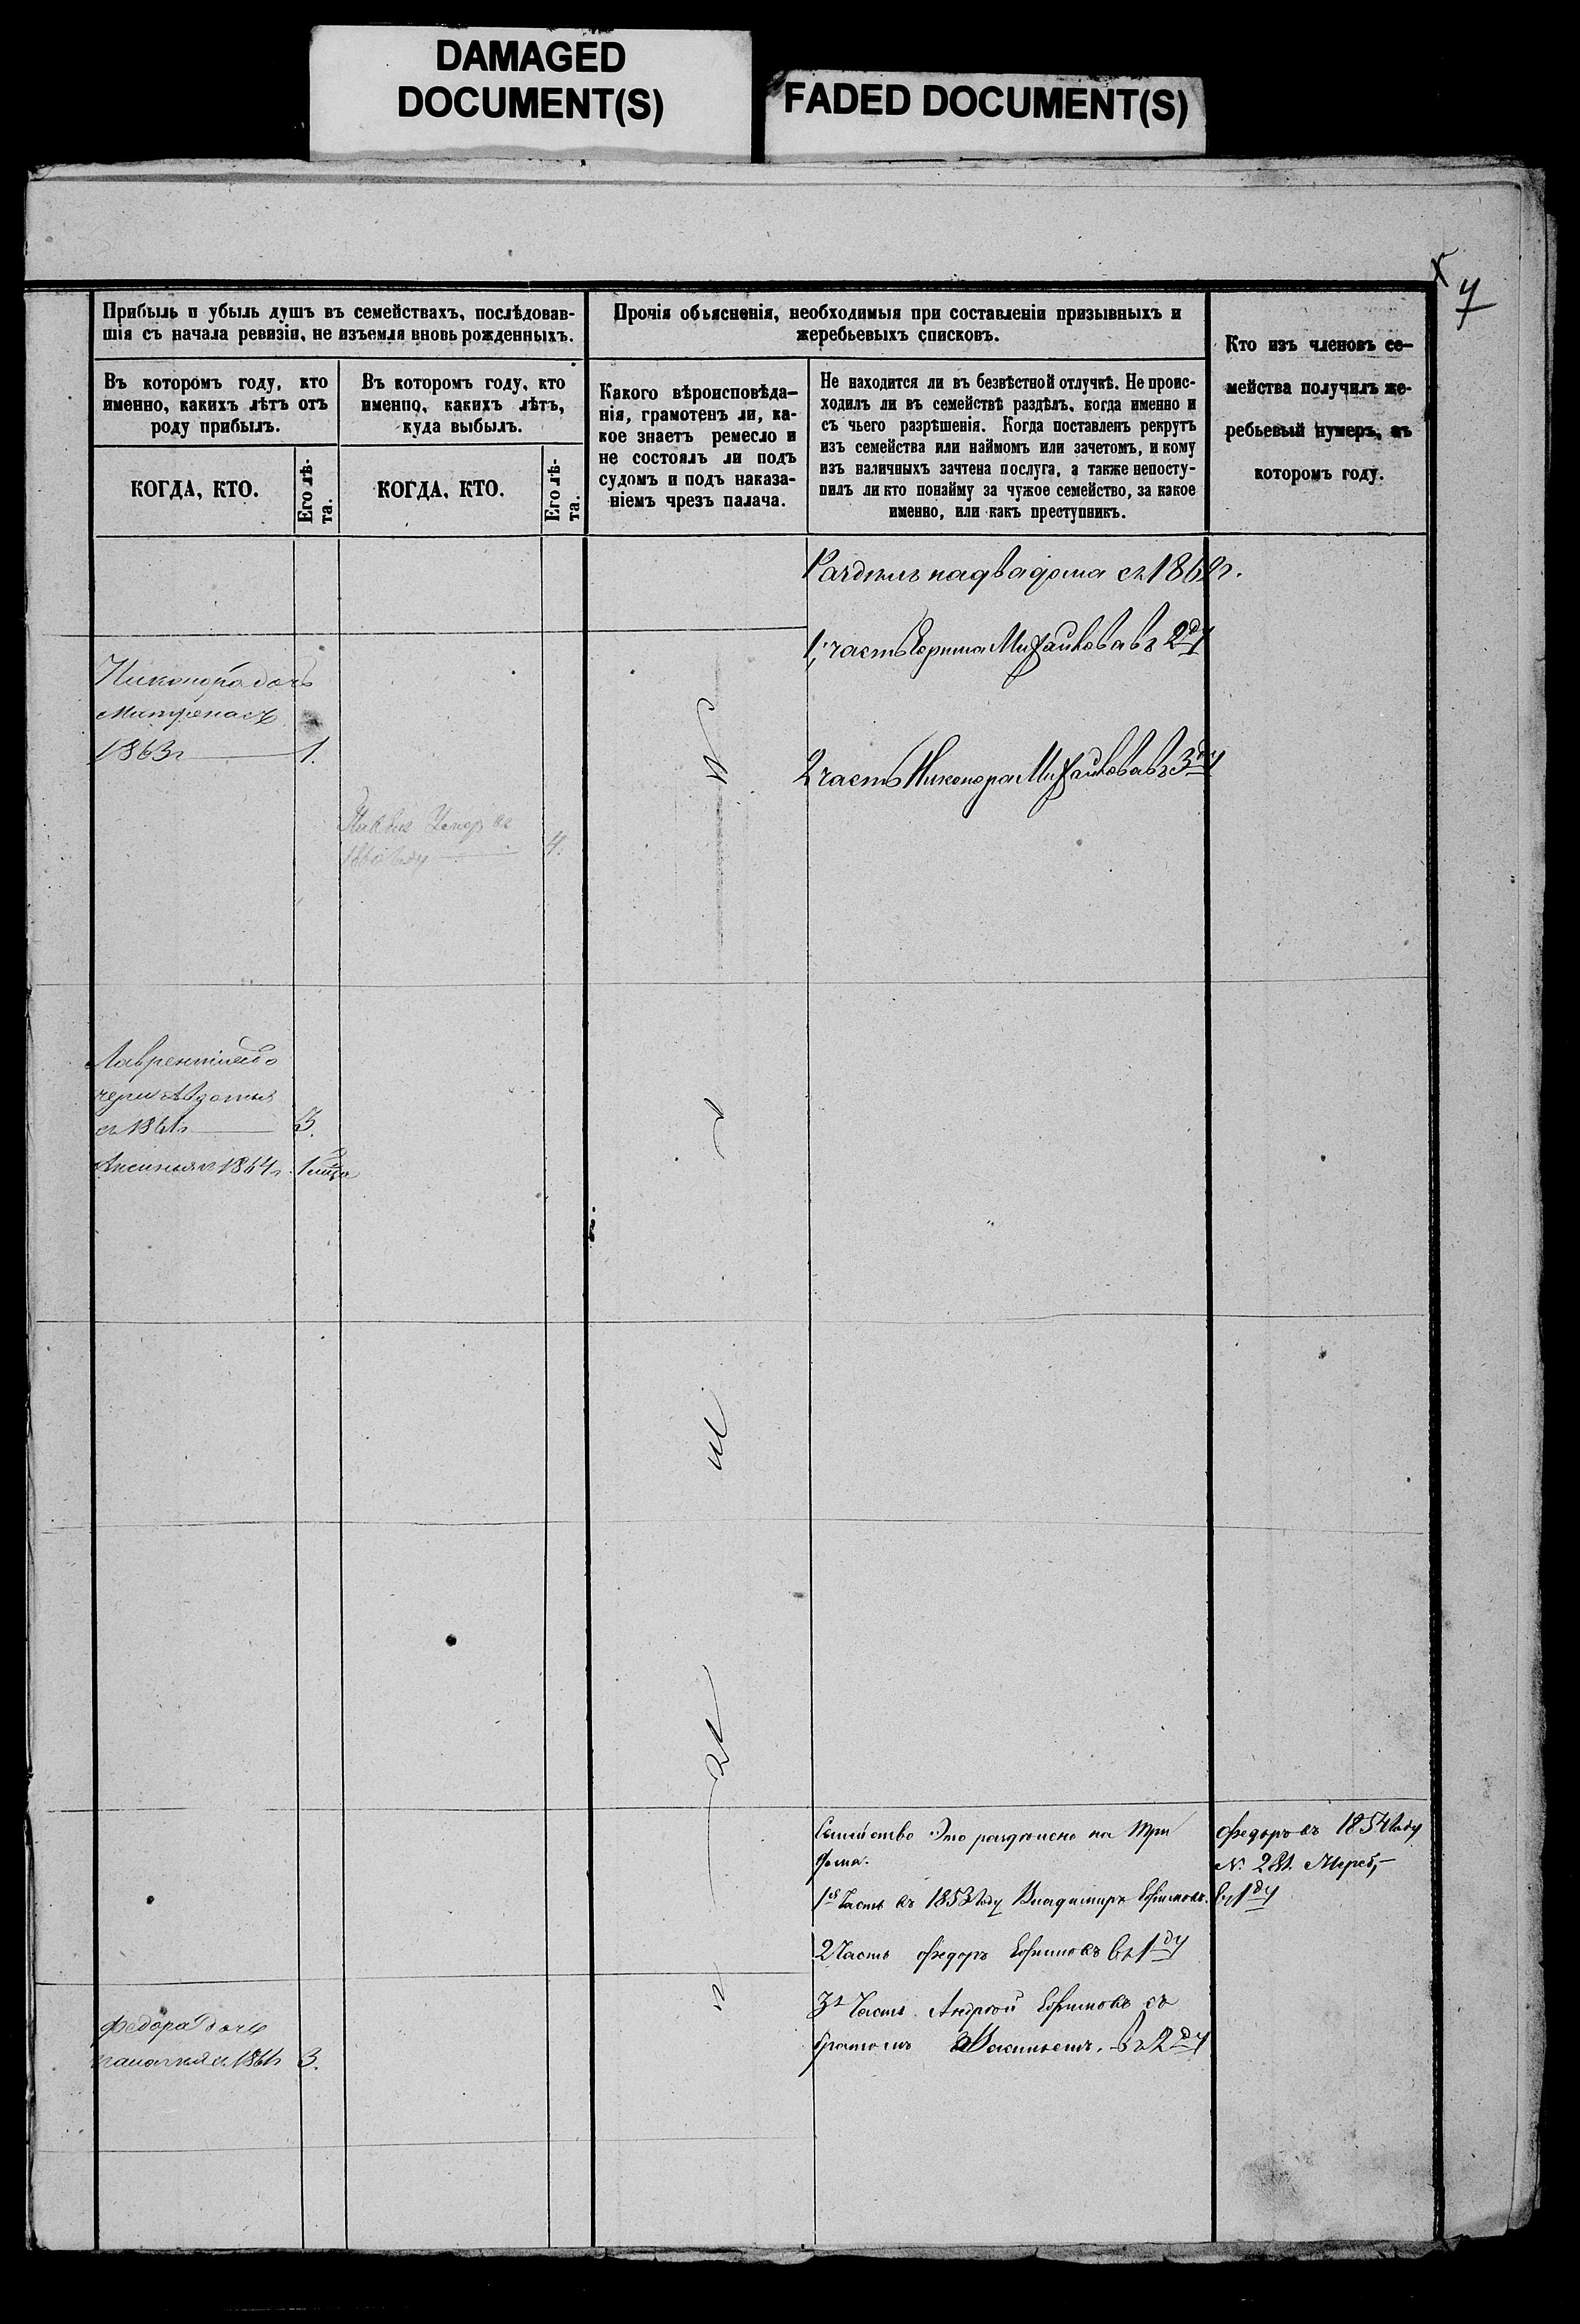 DAMAGED
DOCUMENT(S)
FADED DOCUMENT(S)
7
Прибыль и убыль душъ въ семействахъ, послѣдовав-
шія съ начала ревизіи, не изъемля вновь рожденныхъ.
Въ которомъ году, кто
именно, какихъ лѣтъ отъ
роду прибылъ.
Въ которомъ году, кто
именно, какихъ лѣтъ,
куда выбылъ.
КОГДА, КТО.
Его лѣ-
та.
КОГДА, КТО.
Его лѣ-
та.
Прочія обьясненія, необходимыя при составленіи призывныхъ и
жеребьевыхъ списковъ.
Какого вѣроисповѣда-
нія, грамотенъ ли, ка-
кое знаетъ ремесло и
не состоялъ ли подъ
судомъ и подъ наказа-
ніемъ чрезъ палача.
Не находится ли въ безвѣстной отлучкѣ. Не проис-
ходилъ ли въ семействѣ раздѣлъ, когда именно и
съ чьего разрѣшенія. Когда поставленъ рекрутъ
изъ семейства или наймомъ или зачетомъ, и кому
изъ наличныхъ зачтена послуга, а также непосту-
пилъ ли кто понайму за чужое семейство, за какое
именно, или какъ преступникъ.
Кто изъ членовъ се-
мейства получилъ же-
ребьевый нумеръ, въ
которомъ году.
надвадома съ 186
1, часть Ефима Михайлова въ 2ду
Никонора дочь
Матрена съ
1863г 1.
2 часть Никонора Михайлова въ 3ду
Умеръ въ
4.
Лаврентія до
чери Авдотья
съ 1861г 3.
Аксинья 1864г 1
Семейство Это раздѣлено на Три
дома.
1я Часть въ 1853 году Владимиръ Ефимовъ. въ 1ду
Федоръ въ 1854 году
№ 281. Жереб,
2 Часть Федоръ Ефимовъ въ 1ду
3я Часть Андрѣй Ефимовъ съ
братомъ Васильемъ. въ 2ду
Федора дочь
1861г 3.